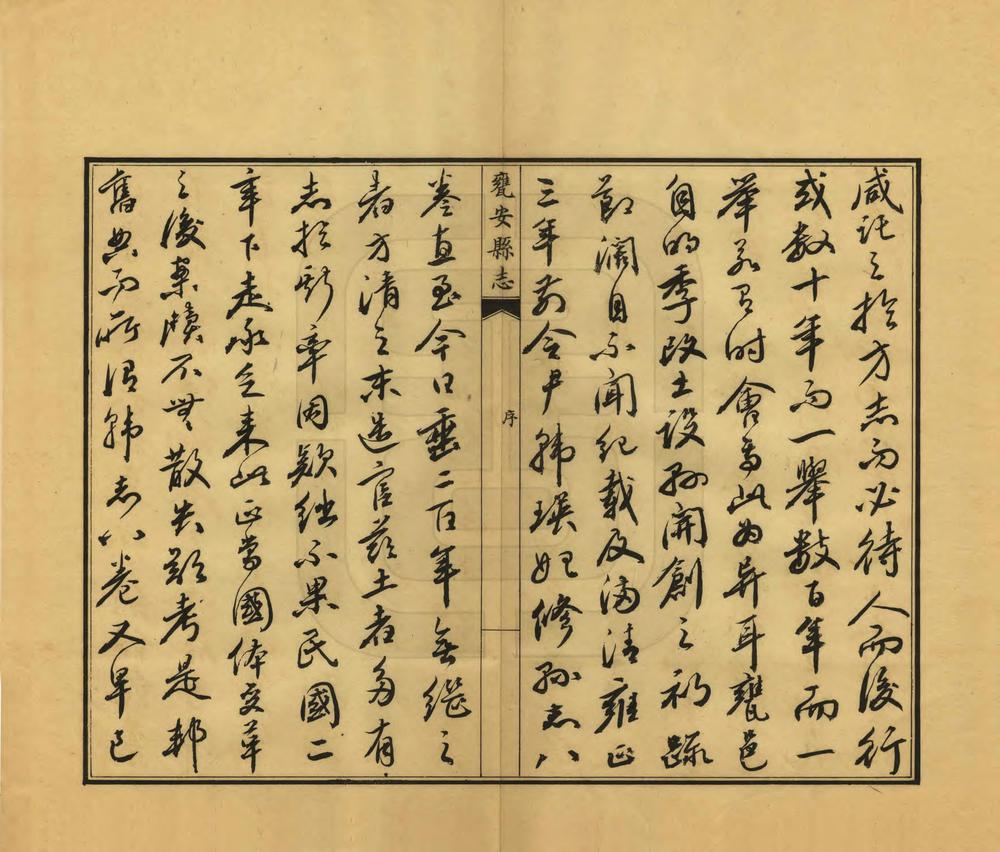 咸託之於方志而必待人而後行
或數十年而一舉數百年而一
舉若有時會焉此為異耳甕邑
自明季改土設縣開創之初疏
節濶目不聞紀載及滿清雍正
三年前令尹韓瑛始修縣志八
甕安縣志
序
卷直至今日垂二百年無繼之
者方清之末造官茲土者多有
志於斯牽因款絀不果民國二
年下走承乏来此正當國体变革
之後案牘不無散失難考是邦
舊典而所得韓志八卷又早已